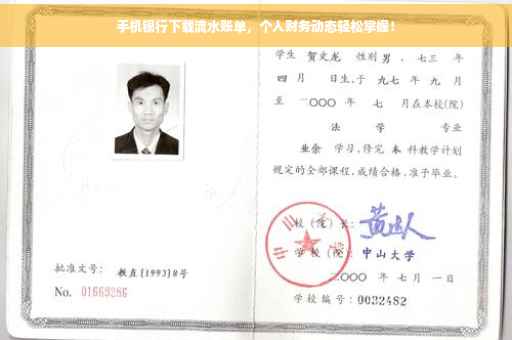 手机银行下载流水账单，个人财务动态轻松掌握！
学生 贺文龙 性别 男，七三 年
四 月 日生，于 九七 年 九 月
至 二〇〇〇 年 七 月在本校(院)
法 学 专业
业余 学习，修完 本 科教学计划
规定的全部课程，成绩合格，准予毕业。
校（院）长：
学校（院）：中山大学
二〇〇〇 年 七 月 一 日
学校编号：0032482
批准文号： 教直[1993]8号
No. 01669286